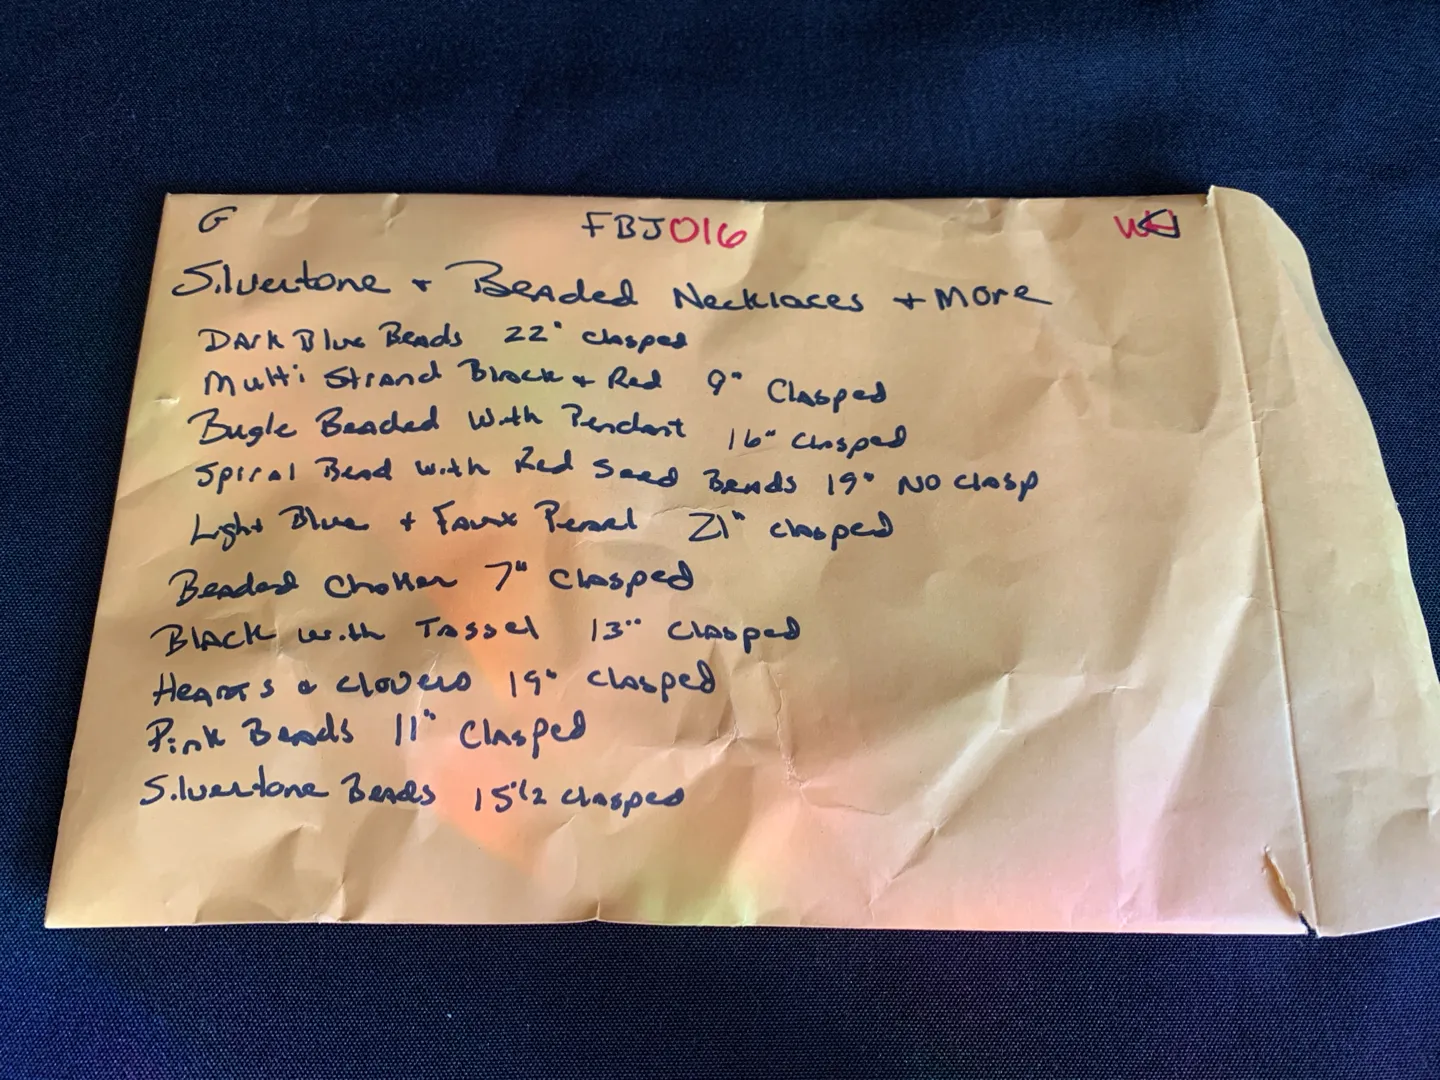 G FBJ016
Silvertone + Beaded Necklaces + More
Dark Blue Beads 22" Clasped
Multi Strand Black + Red 9" Clasped
Bugle Beaded With Pendant 16" Clasped
Spiral Bead with Red Seed Beads 19" NO Clasp
Light Blue + Faux Pearl 21" Clasped
Beaded Choker 7" Clasped
Black with Tassel 13" Clasped
Hearts & Clovers 19" Clasped
Pink Beads 11" Clasped
Silvertone Beads 15"1/2 Clasped